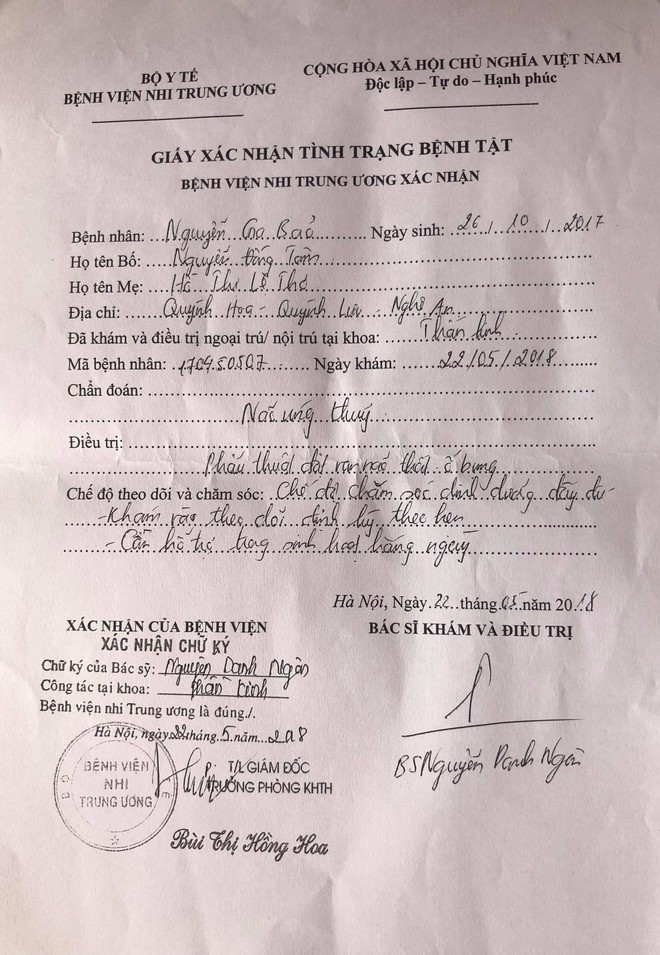 BỘ Y TẾ
BỆNH VIỆN NHI TRUNG ƯƠNG
CỘNG HÒA XÃ HỘI CHỦ NGHĨA VIỆT NAM
Độc lập – Tự do – Hạnh phúc
GIẤY XÁC NHẬN TÌNH TRẠNG BỆNH TẬT
BỆNH VIỆN NHI TRUNG ƯƠNG XÁC NHẬN
Bệnh nhân: Nguyễn Gia Bảo Ngày sinh: 26/10/2017
Họ tên Bố: Nguyễn Đồng Tâm
Họ tên Mẹ: Hồ Thị Lệ Thơ
Địa chỉ: Quỳnh Hoa - Quỳnh Lưu - Nghệ An
Đã khám và điều trị ngoại trú/ nội trú tại khoa: Thần kinh
Mã bệnh nhân: 170450507 Ngày khám: 22/05/2018
Chẩn đoán:
Não úng thuỷ
Điều trị:
Phẫu thuật đặt van não thất ổ bụng
Chế độ theo dõi và chăm sóc: Chế độ chăm sóc dinh dưỡng đầy đủ
- Khám theo dõi định kỳ theo hẹn
- Cần hỗ trợ trong sinh hoạt hằng ngày
Hà Nội, Ngày 22 tháng 05 năm 2018
XÁC NHẬN CỦA BỆNH VIỆN
BÁC SĨ KHÁM VÀ ĐIỀU TRỊ
XÁC NHẬN CHỮ KÝ
Chữ ký của Bác sỹ: Nguyễn Danh Ngôn
Công tác tại khoa: Thần kinh
Bệnh viện nhi Trung ương là đúng./.
Hà Nội, ngày 22 tháng 5 năm 2018
BS Nguyễn Danh Ngôn
T/L GIÁM ĐỐC
TRƯỞNG PHÒNG KHTH
BỆNH VIỆN
NHI
TRUNG ƯƠNG
Bùi Thị Hồng Hoa